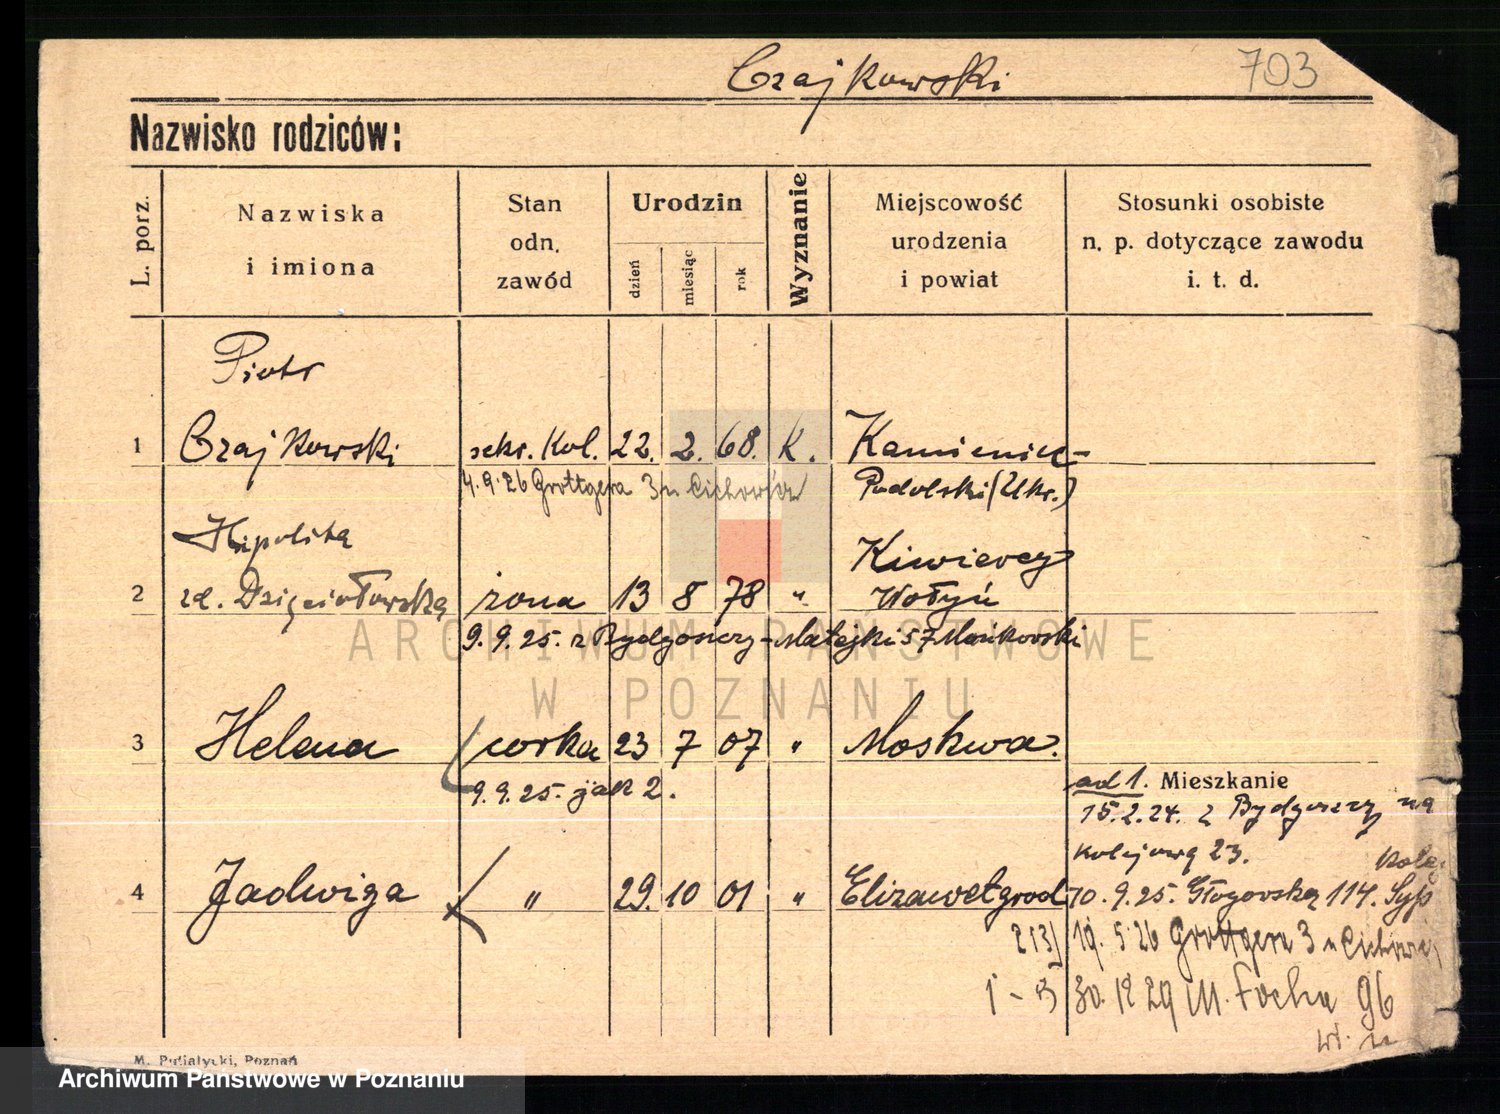 Czajkowski 703
Nazwisko rodziców:
L. porz.
Nazwiska
i imiona
Stan
odn.
zawód
Urodzin
dzień
miesiąc
rok
Wyznanie
Miejscowość
urodzenia
i powiat
Stosunki osobiste
n. p. dotyczące zawodu
i. t. d.
Piotr
1 Czajkowski sekr. Kol. 22. 2. 68. K. Kamieniec-
4.9.26 Grottgera 3 Podolski (Ukr.)
Hipolita
Kiwiercy
2 zd. Dzięciołowska żona 13 8 78 " Wołyń
9.9.25. z Bydgoszczy - Matejki 57 Mańkowski
3 Helena corka 23 7 07 " Moskwa.
9.9.25. jak 2.
ad 1. Mieszkanie
15.2.24. z Bydgoszczy na
Kolejową 23.
4 Jadwiga " 29. 10 01 " Elizawetgrod
10.9.25. Głogowska 114.
19. 5 26 Grottgera 3
1 - 3 30. 12 29 M. Focha 96
M. Putiatycki, Poznań
ARCHIWUM PAŃSTWOWE
W POZNANIU
Archiwum Państwowe w Poznaniu